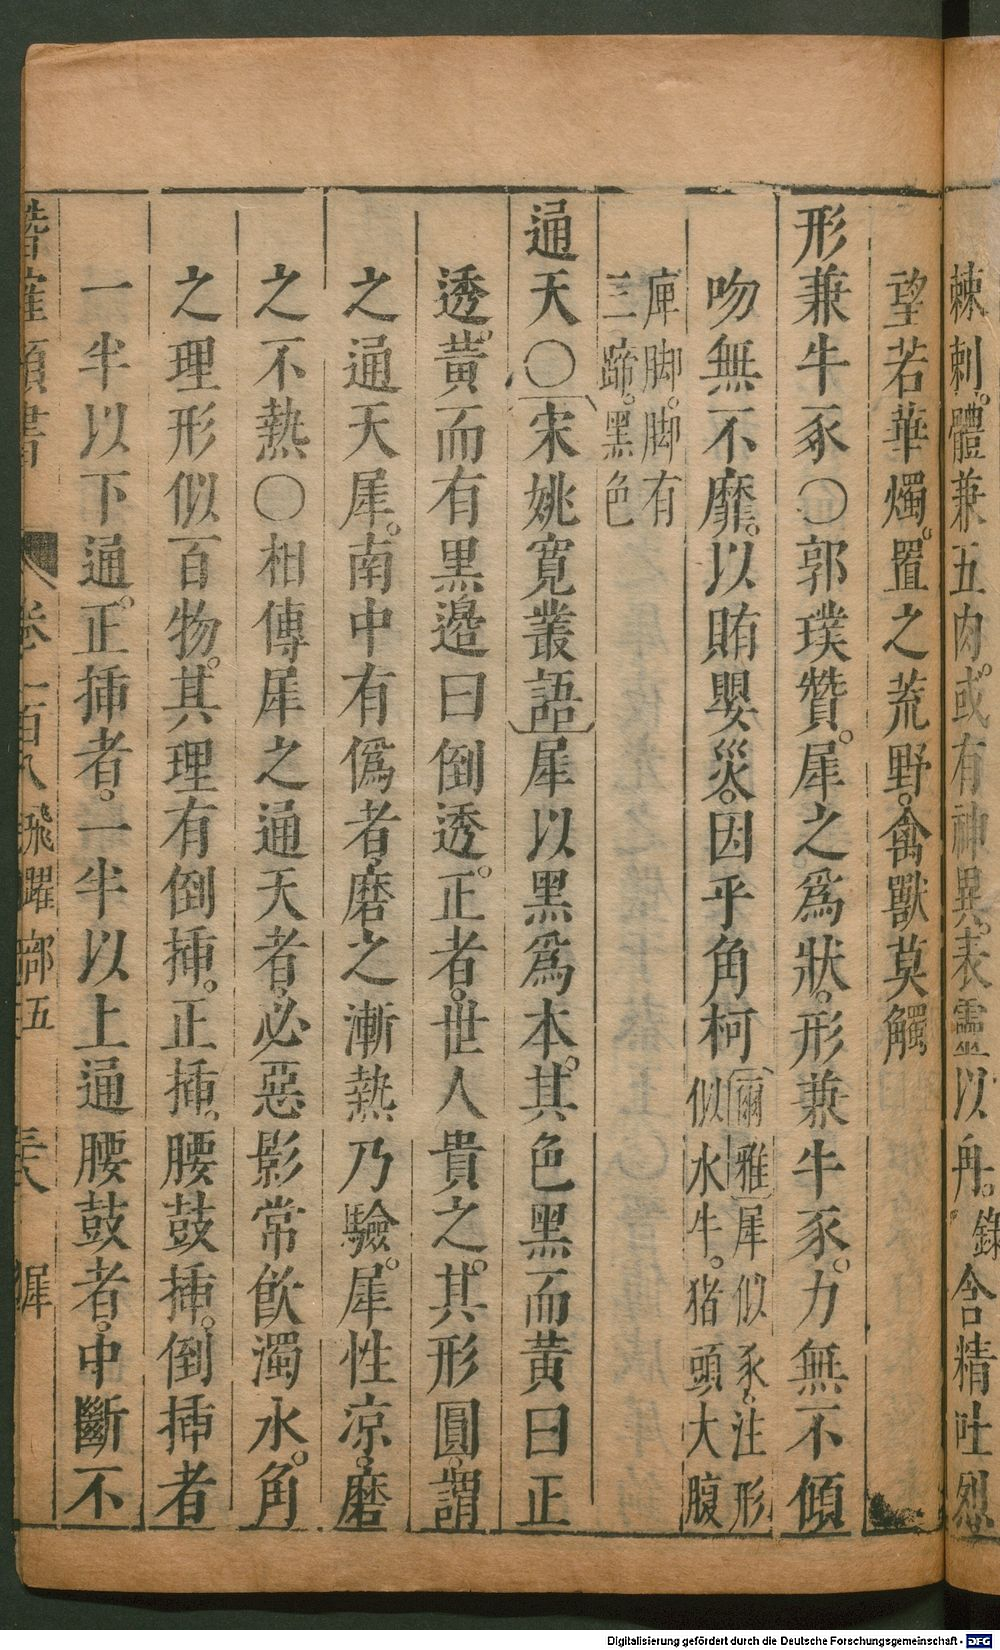 棘刺。體兼五肉。或有神異。表靈以角。含精吐烈
望若華燭。置之荒野。禽獸莫觸
形兼牛豕〇郭璞贊。犀之爲狀。形兼牛豕。力無不傾
吻無不靡。以賄嬰災。因乎角柯爾雅犀似豕。注形
似水牛。猪頭大腹
庳脚。脚有
三蹄。黑色
通天〇宋姚寬叢語犀以黑爲本。其色黑而黃曰正
透。黃而有黒邉曰倒透。正者。世人貴之。其形圓。謂
之通天犀。南中有僞者。磨之漸熱乃驗。犀性凉。磨
之不熱〇相傳犀之通天者。必惡影常飲濁水。角
之理形似百物。其理有倒揷。正揷。腰鼓揷。倒揷者
一半以下通。正揷者。一半以上通腰鼓者。中斷不
潛確類書
卷一百八飛躍部五
犀
Digitalisierung gefördert durch die Deutsche Forschungsgemeinschaft - DFG